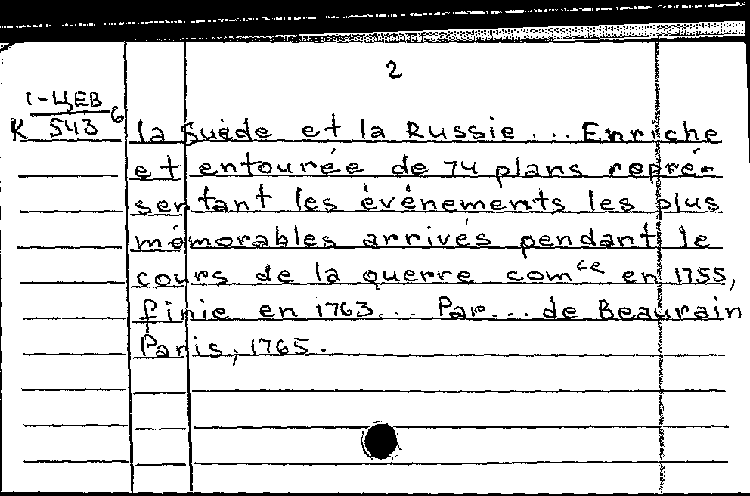 2
1-ЦЕВ
К 543 6
la Suède et la Russie... Enriche
et entourée de 74 plans repré-
sentant les évènements les plus
mémorables arrivés pendant le
cours de la querre comce en 1755,
finie en 1763... Par... de Beaurain
Paris, 1765.